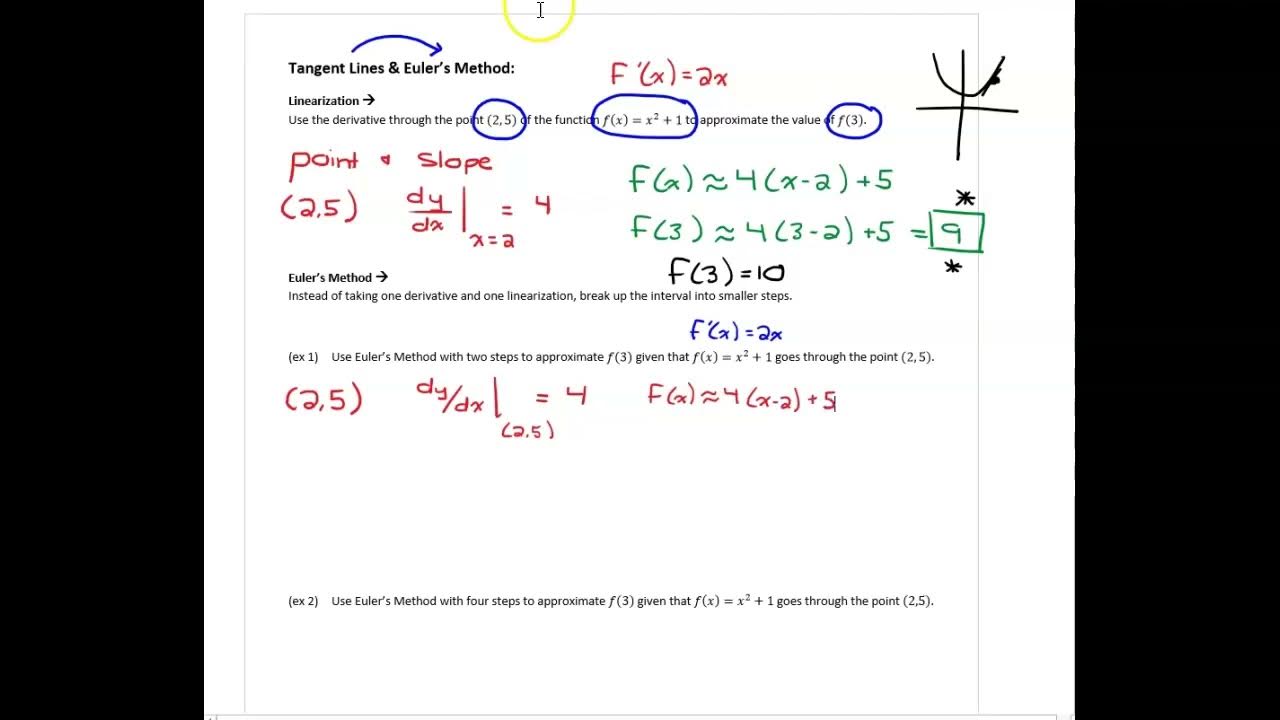 Tangent Lines & Euler's Method:
F'(x) = 2x
Linearization →
Use the derivative through the point (2, 5) of the function f(x) = x² + 1 to approximate the value of f(3).
point & slope
(2,5) dy/dx | x=2 = 4
F(x) ≈ 4(x-2) + 5
F(3) ≈ 4(3-2) + 5 = 9
*
*
F(3) = 10
Euler's Method →
Instead of taking one derivative and one linearization, break up the interval into smaller steps.
F'(x) = 2x
(ex 1) Use Euler's Method with two steps to approximate f(3) given that f(x) = x² + 1 goes through the point (2, 5).
(2,5) dy/dx | (2,5) = 4 F(x) ≈ 4(x-2) + 5
(ex 2) Use Euler's Method with four steps to approximate f(3) given that f(x) = x² + 1 goes through the point (2,5).